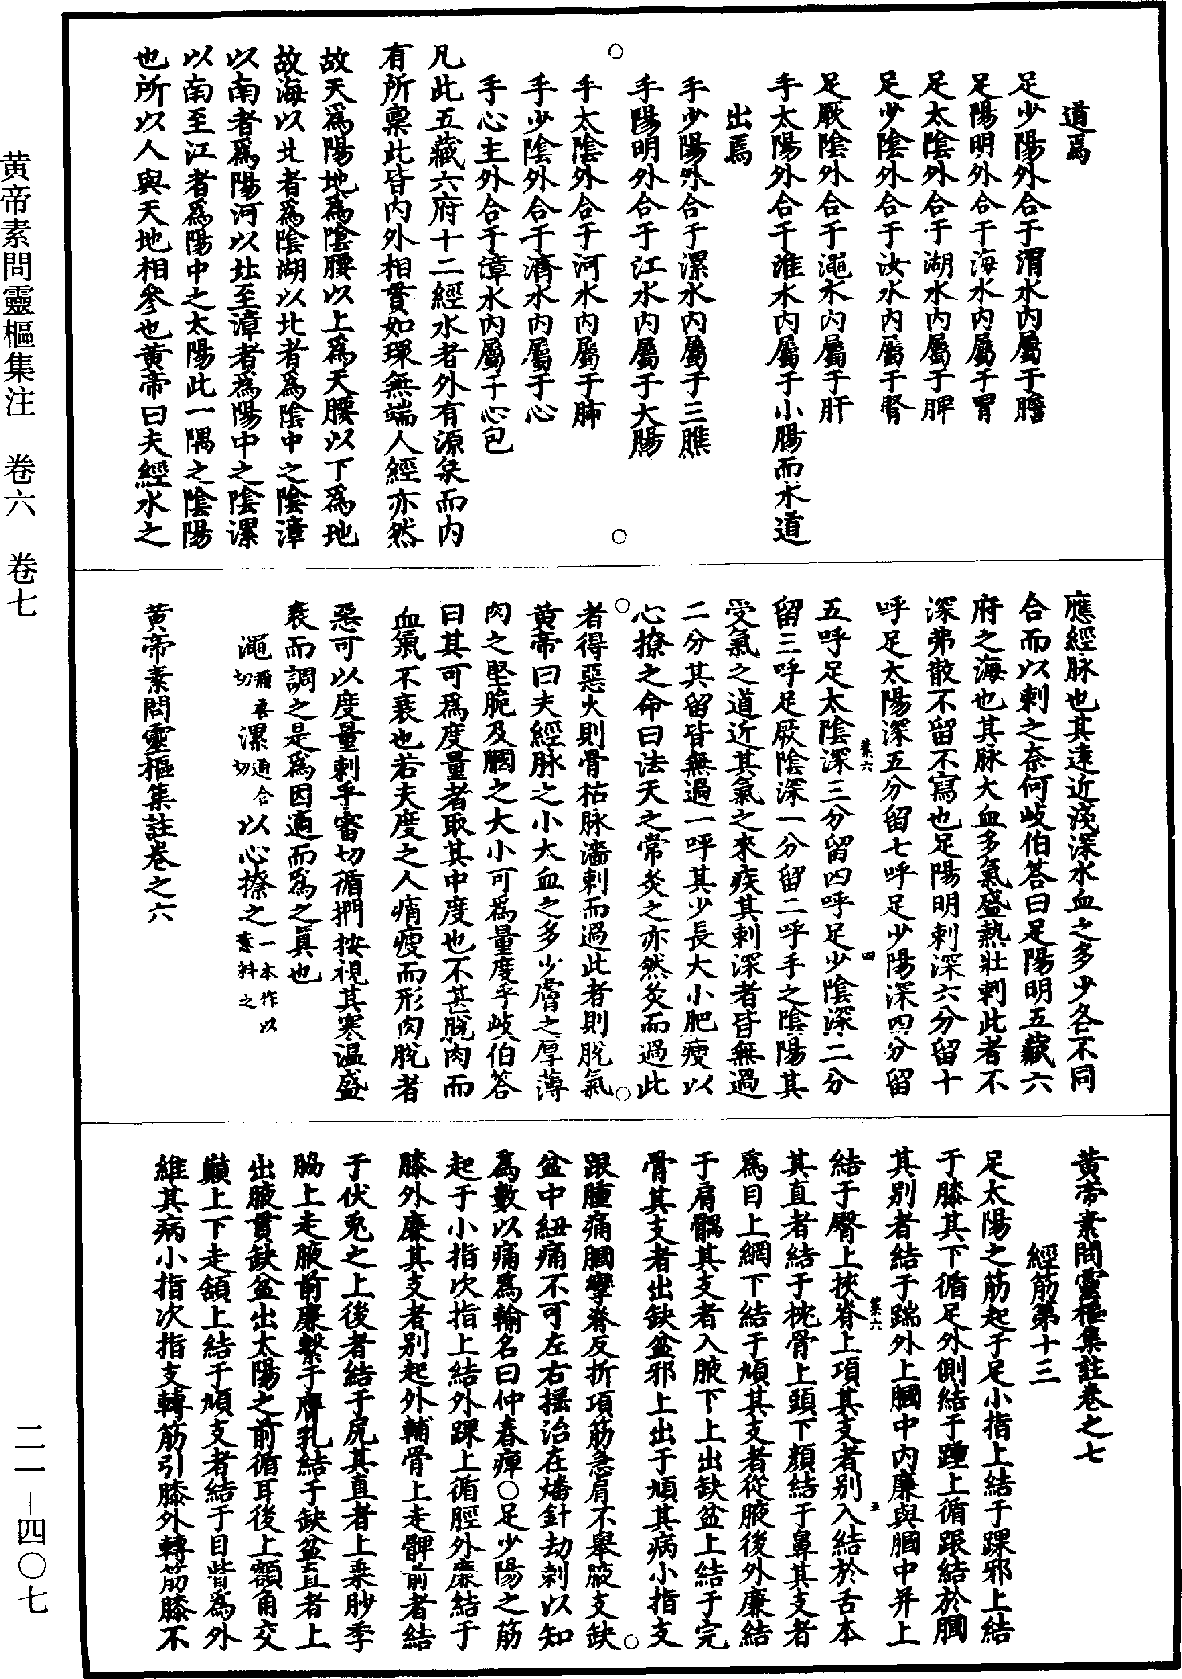 黄帝素問靈樞集注　卷六　卷七
道焉
足少陽外合于渭水内屬于膽
足陽明外合于海水内屬于胃
足太陰外合于湖水内屬于脾
足少陰外合于汝水内屬于腎
足厥陰外合于澠水内屬于肝
手太陽外合于淮水内屬于小腸而水道
出焉
手少陽外合于漯水内屬于三膲
手陽明外合于江水内屬于大腸
手太陰外合于河水内屬于肺
手少陰外合于濟水内屬于心
手心主外合于漳水内屬于心包
凡此五藏六府十二經水者外有源泉而内
有所稟此皆内外相貫如環無端人經亦然
故天爲陽地爲陰腰以上爲天腰以下爲地
故海以北者爲陰湖以北者爲陰中之陰漳
以南者爲陽河以北至漳者爲陽中之陰漯
以南至江者爲陽中之太陽此一隅之陰陽
也所以人與天地相參也黄帝曰夫經水之
應經脉也其遠近淺深水血之多少各不同
合而以刺之奈何歧伯荅曰足陽明五藏六
府之海也其脉大血多氣盛熱壯刺此者不
深弗散不留不寫也足陽明刺深六分留十
呼足太陽深五分留七呼足少陽深四分留
五呼足太陰深三分留四呼足少陰深二分
留三呼足厥陰深一分留二呼手之陰陽其
受氣之道近其氣之來疾其刺深者皆無過
二分其留皆無過一呼其少長大小肥瘦以
心撩之命曰法天之常灸之亦然灸而過此
者得惡火則骨枯脉濇刺而過此者則脱氣
黄帝曰夫經脉之小大血之多少膚之厚薄
肉之堅脆及膕之大小可爲量度乎歧伯荅
曰其可爲度量者取其中度也不甚脱肉而
血氣不衰也若夫度之人痟瘦而形肉脱者
惡可以度量刺乎審切循捫按視其寒温盛
衰而調之是爲因適而爲之眞也
澠彌善切漯通合切以心撩之一本作以意料之
黄帝素問靈樞集註卷之六
黄帝素問靈樞集註卷之七
經筋第十三
足太陽之筋起于足小指上結于踝邪上結
于膝其下循足外側結于踵上循跟結於膕
其别者結于踹外上膕中内廉與膕中并上
結于臀上挾脊上項其支者别入結於舌本
其直者結于枕骨上頭下顔結于鼻其支者
爲目上網下結于頄其支者從腋後外廉結
于肩髃其支者入腋下上出缺盆上結于完
骨其支者出缺盆邪上出于頄其病小指支
跟腫痛膕攣脊反折項筋急肩不舉腋支缺
盆中紐痛不可左右揺治在燔針劫刺以知
爲數以痛爲輸名曰仲春痺○足少陽之筋
起于小指次指上結外踝上循脛外廉結于
膝外廉其支者别起外輔骨上走髀前者結
于伏兎之上後者結于尻其直者上乘䏚季
脇上走腋前廉繫于膺乳結于缺盆直者上
出腋貫缺盆出太陽之前循耳後上額角交
巔上下走頷上結于頄支者結于目眥爲外
維其病小指次指支轉筋引膝外轉筋膝不
二一－四〇七